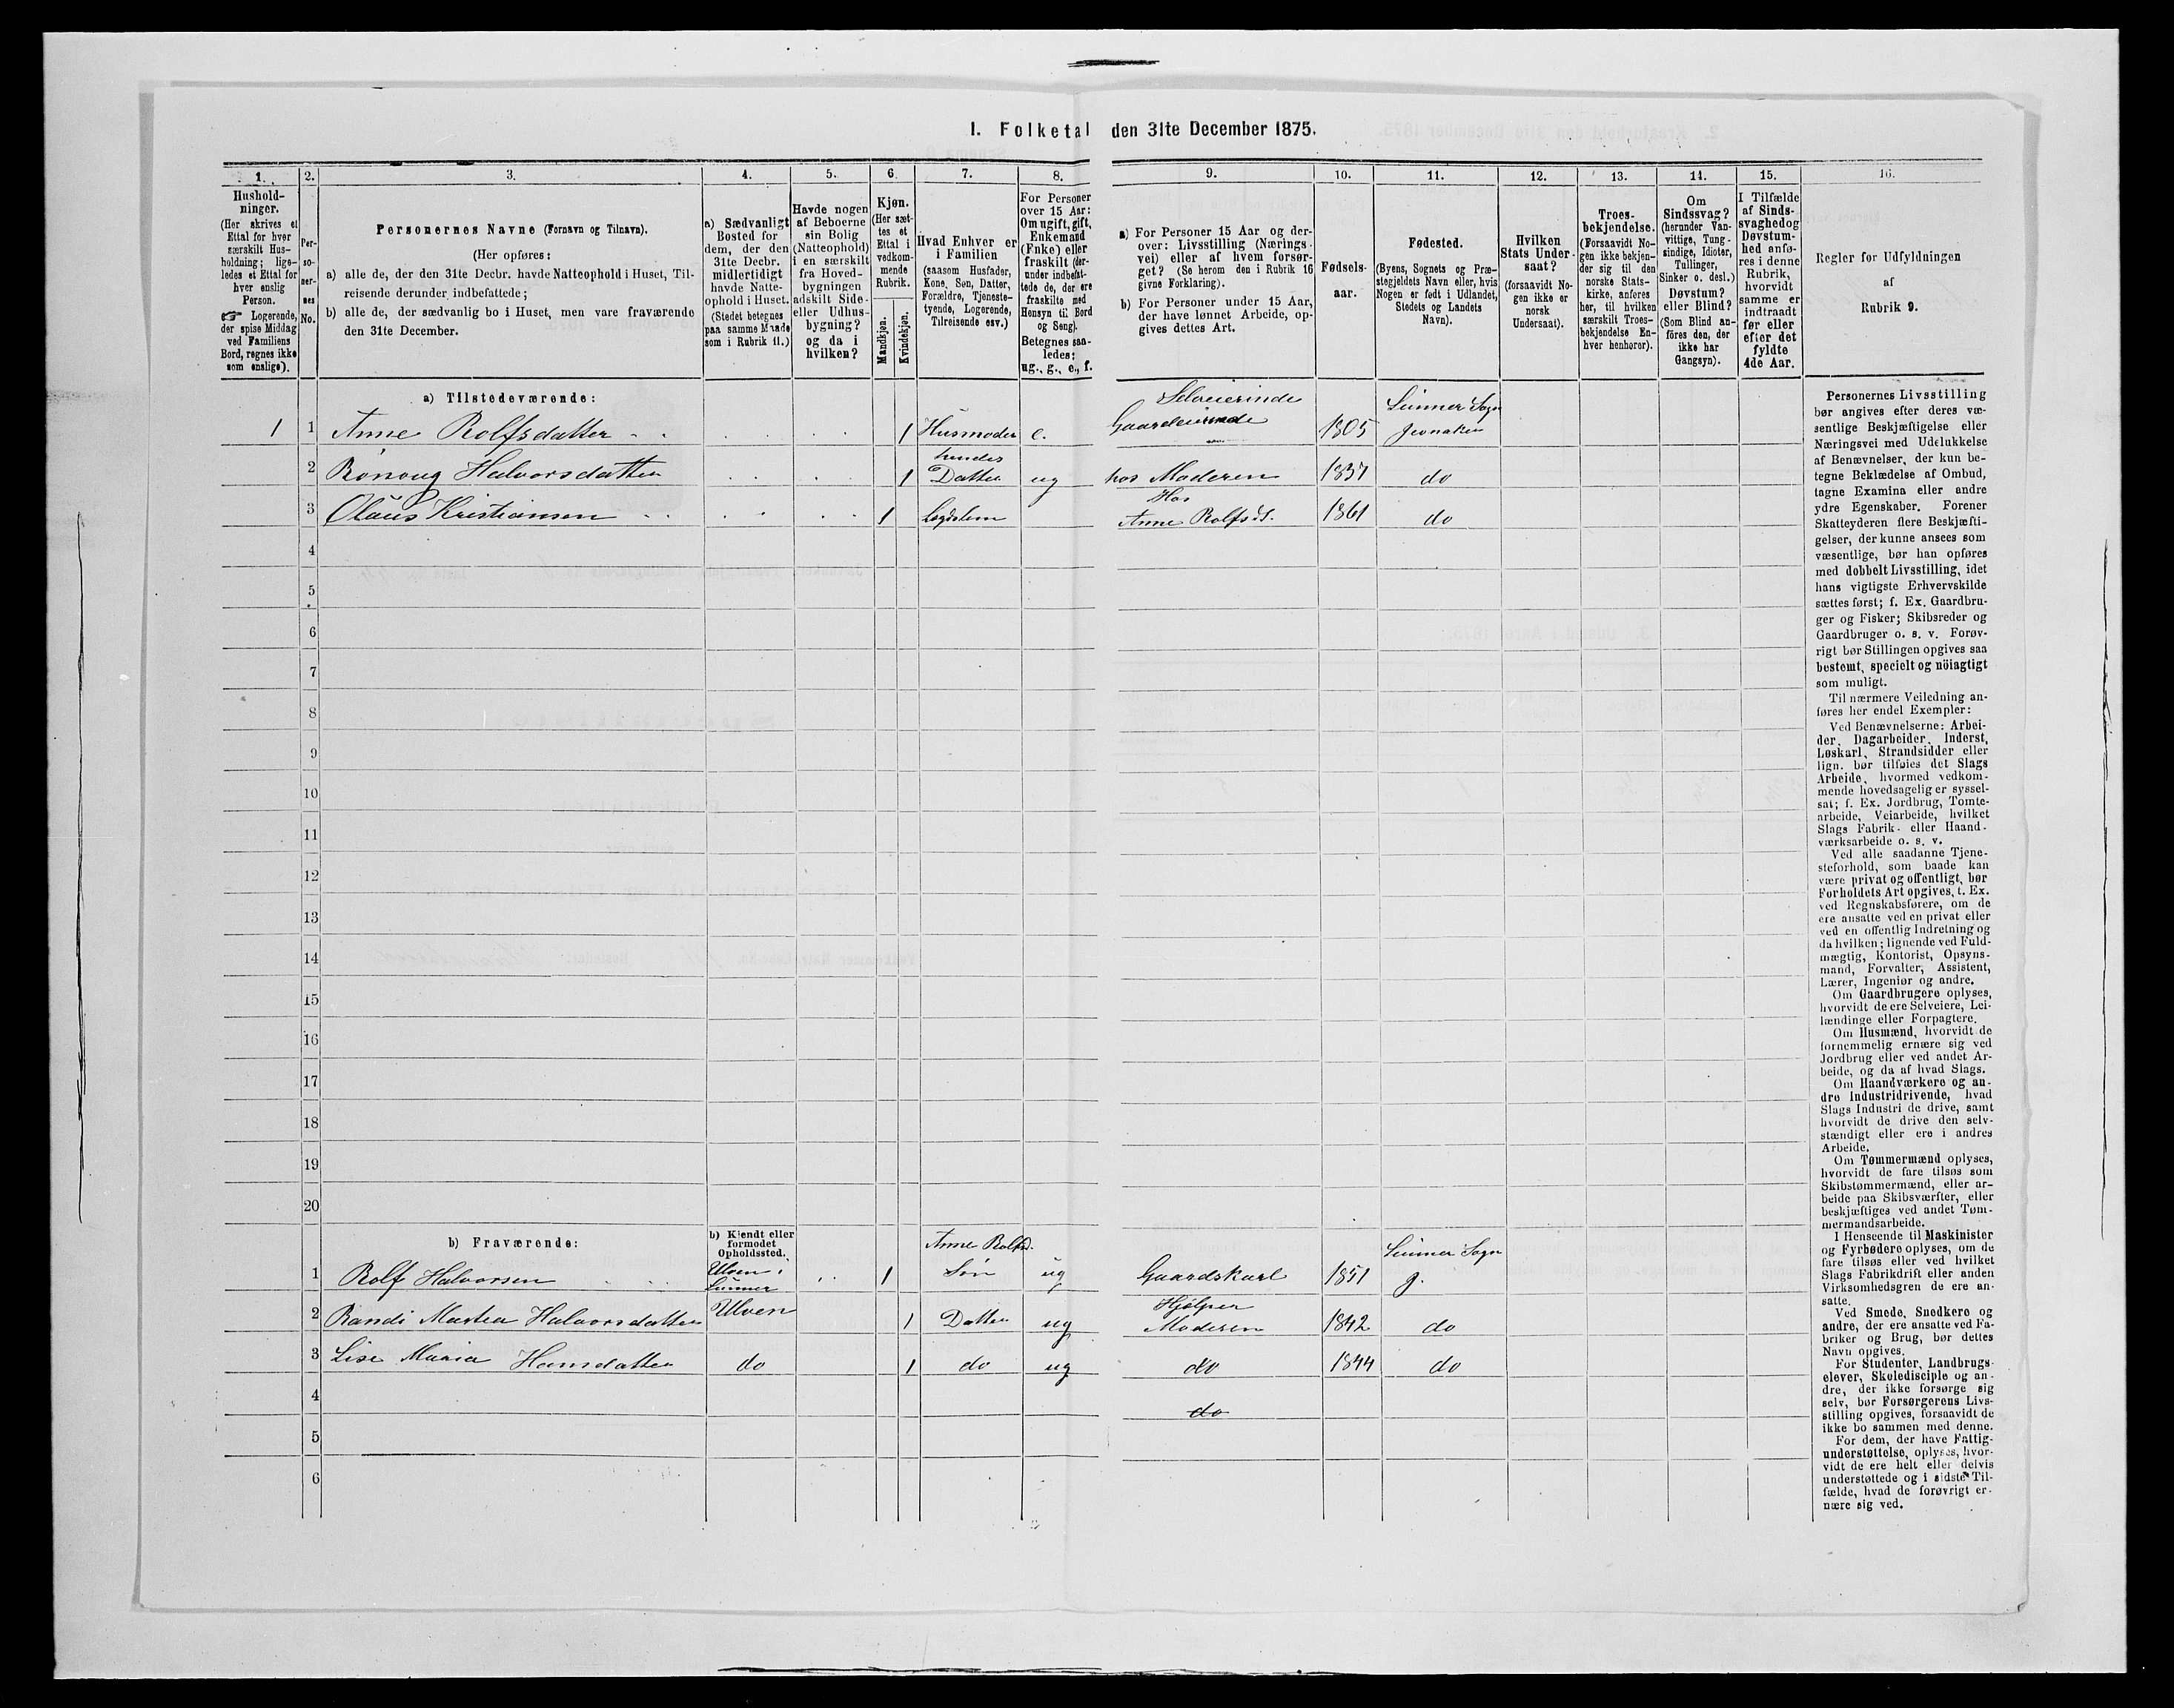 1. Folketal den 31te December 1875.
1.
Hushold-
ninger.
(Her skrives et
Ettal for hver
særskilt Hus-
holdning; lige-
ledes et Ettal for
hver enslig
Person.
☞ Logerende,
der spise Middag
ved Familiens
Bord, regnes ikke
som enslige).
2.
Per-
so-
ner-
nes
No.
3.
Personernes Navne (Fornavn og Tilnavn).
(Her opføres:
a) alle de, der den 31te Decbr. havde Natteophold i Huset, Til-
reisende derunder indbefattede;
b) alle de, der sædvanlig bo i Huset, men vare fraværende
den 31te December.
4.
a) Sædvanligt
Bosted for
dem, der den
31te Decbr.
midlertidigt
havde Natte-
ophold i Huset.
(Stedet betegnes
paa samme Maade
som i Rubrik 11.)
5.
Havde nogen
af Beboerne
sin Bolig
(Natteophold)
i en særskilt
fra Hoved-
bygningen
adskilt Side-
eller Udhus-
bygning?
og da i
hvilken?
6.
Kjøn.
(Her sæt-
tes et
Ettal i
vedkom-
mende
Rubrik.
Mandkjøn.
Kvindekjøn.
7.
Hvad Enhver er
i Familien
(saasom Husfader,
Kone, Søn, Datter,
Forældre, Tjeneste-
tyende, Logerende,
Tilreisende osv.)
8.
For Personer
over 15 Aar:
Om ugift, gift,
Enkemand
(Enke) eller
fraskilt (der-
under indbefat-
tede de, der ere
fraskilte med
Hensyn til Bord
og Seng).
Betegnes saa-
ledes:
ug., g., e., f.
9.
a) For Personer 15 Aar og der-
over: Livsstilling (Nærings-
vei) eller af hvem forsør-
get? (Se herom den i Rubrik 16
givne Forklaring).
b) For Personer under 15 Aar,
der have lønnet Arbeide, op-
gives dettes Art.
10.
Fødsels-
aar.
11.
Fødested.
(Byens, Sognets og Præ-
stegjeldets Navn eller, hvis
Nogen er født i Udlandet,
Stedets og Landets
Navn).
12.
Hvilken
Stats Under-
saat?
(forsaavidt No-
gen ikke er
norsk
Undersaat).
13.
Troes-
bekjendelse.
(Forsaavidt No-
gen ikke bekjen-
der sig til den
norske Stats-
kirke, anføres
her, til hvilken
særskilt Troes-
bekjendelse En-
hver henhører).
14.
Om
Sindssvag?
(herunder Van-
vittige, Tung-
sindige, Idioter,
Tullinger,
Sinker o. desl.)
Døvstum?
eller Blind?
(Som Blind an-
föres den, der
ikke har
Gangsyn).
15.
I Tilfælde
af Sinds-
svaghed og
Døvstum-
hed anfø-
res i denne
Rubrik,
hvorvidt
samme er
indtraadt
før eller
efter det
fyldte
4de Aar.
16.
Regler for Udfyldningen
af
Rubrik 9.
a) Tilstedeværende:
1 1 Anne Rolfsdatter 1 Husmoder e. Selveierinde Gaardeierinde 1805 Lunner Sogn Jevnaker
2 Rønoug Halvorsdatter 1 hendes Datter ug hos Moderen 1837 do
3 Olaus Kristiansen 1 Lægdslem Hos Anne Rolfsdt. 1861 do
4
5
6
7
8
9
10
11
12
13
14
15
16
17
18
19
20
b) Fraværende:
b) Kjendt eller
formodet
Opholdssted.
1 Rolf Halvorsen Ulven i Lunner 1 Anne Rolfsd. Søn ug Gaardskarl 1851 Lunner Sogn J.
2 Randi Marthea Halvorsdatter Ulven 1 Datter ug Hjelper Moderen 1842 do
3 Lise Maria Hansdatter do 1 do ug do 1844 do
4 do
5
6
Personernes Livsstilling
bør angives efter deres væ-
sentlige Beskjæftigelse eller
Næringsvei med Udelukkelse
af Benævnelser, der kun be-
tegne Beklædelse af Ombud,
tagne Examina eller andre
ydre Egenskaber. Forener
Skatteyderen flere Beskjæfti-
gelser, der kunne ansees som
væsentlige, bør han opføres
med dobbelt Livsstilling, idet
hans vigtigste Erhvervskilde
sættes først; f. Ex. Gaardbru-
ger og Fisker; Skibsreder og
Gaardbruger o. s. v. Forøv-
rigt bør Stillingen opgives saa
bestemt, specielt og nöiagtigt
som muligt.
Til nærmere Veiledning an-
føres her endel Exempler:
Ved Benævnelserne: Arbei-
der, Dagarbeider, Inderst,
Løskarl, Strandsidder eller
lign. bør tilføies det Slags
Arbeide, hvormed vedkom-
mende hovedsagelig er syssel-
sat; f. Ex. Jordbrug, Tomte-
arbeide, Veiarbeide, hvilket
Slags Fabrik- eller Haand-
værksarbeide o. s. v.
Ved alle saadanne Tjene-
steforhold, som baade kan
være privat og offentligt, bør
Forholdets Art opgives, t. Ex.
ved Regnskabsførere, om de
ere ansatte ved en privat eller
ved en offentlig Indretning og
da hvilken; lignende ved Fuld-
mægtig, Kontorist, Opsyns-
mand, Forvalter, Assistent,
Lærer, Ingeniør og andre.
Om Gaardbrugere oplyses,
hvorvidt de ere Selveiere, Lei-
lændinge eller Forpagtere.
Om Husmænd, hvorvidt de
fornemmelig ernære sig ved
Jordbrug eller ved andet Ar-
beide, og da af hvad Slags.
Om Haandværkere og an-
dre Industridrivende, hvad
Slags Industri de drive, samt
hvorvidt de drive den selv-
stændigt eller ere i andres
Arbeide.
Om Tømmermænd oplyses,
hvorvidt de fare tilsøs som
Skibstømmermænd, eller ar-
beide paa Skibsværfter, eller
beskjæftiges ved andet Tøm-
mermandsarbeide.
I Henseende til Maskinister
og Fyrbødere oplyses, om de
fare tilsøs eller ved hvilket
Slags Fabrikdrift eller anden
Virksomhedsgren de ere an-
satte.
Ved Smede, Snedkere og
andre, der ere ansatte ved Fa-
briker og Brug, bør dettes
Navn opgives.
For Studenter, Landbrugs-
elever, Skoledisciple og an-
dre, der ikke forsørge sig
selv, bør Forsørgerens Livs-
stilling opgives, forsaavidt de
ikke bo sammen med denne.
For dem, der have Fattig-
understøttelse, oplyses, hvor-
vidt de ere helt eller delvis
understøttede og i sidste Til-
fælde, hvad de forøvrigt er-
nære sig ved.